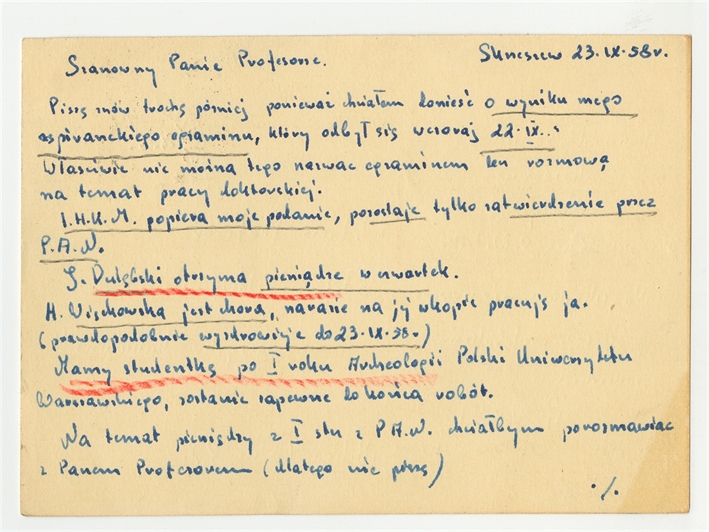 Szanowny Panie Profesorze. 23.IX.58r.
Piszę znów trochę później ponieważ chciałem donieść o wyniku mego
aspiranckiego egzaminu, który odbył się wczoraj 22.IX..
Właściwie nie można tego nazwać egzaminem lecz rozmową
na temat pracy doktorskiej.
I.H.K.M. popiera moje podanie, pozostaje tylko zatwierdzenie przez
P.A.N.
Dulębski otrzyma pieniądze w czwartek.
H. Więckowska jest chora, narazie na jej wkopie pracuję ja.
(prawdopodobnie wyzdrowieje do 23.IX.58r)
Mamy studentkę po I roku Archeologii Polski Uniwersytetu
Warszawskiego, zostanie zapewne do końca robót.
Na temat pieniędzy z I stu z P.A.N. chciałbym porozmawiać
z Panem Profesorem (dlatego nie piszę)
./.